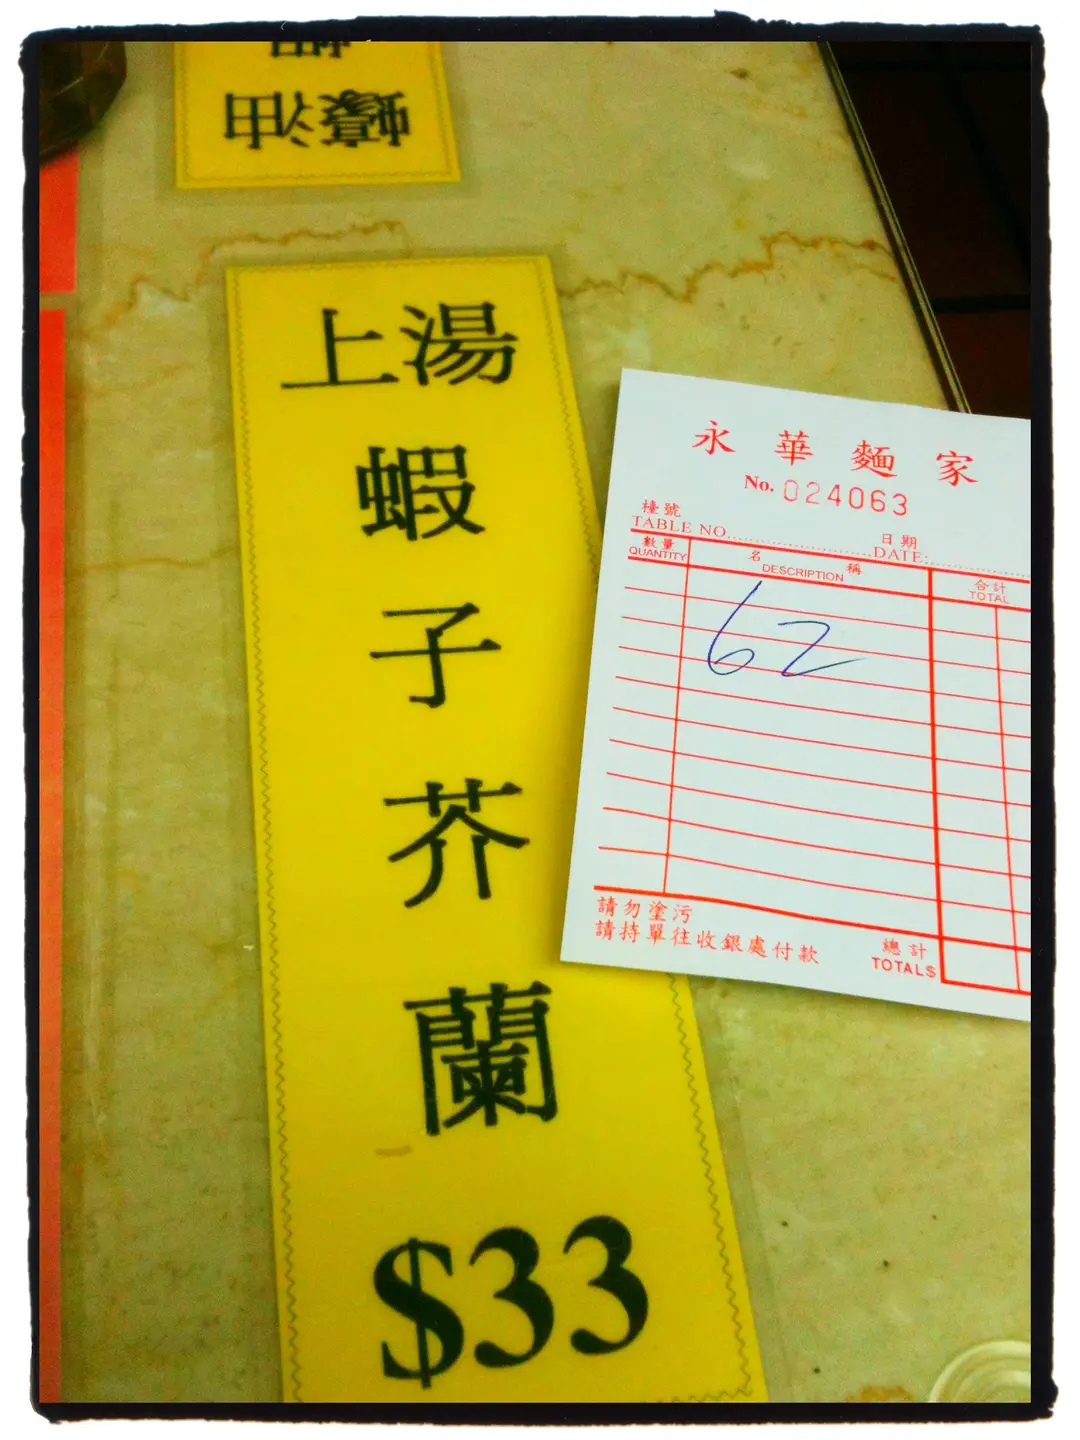 蠔油
上湯
蝦
子
芥
蘭
$33
永華麵家
No. 024063
檯號
TABLE NO.
日期
DATE:
數量
QUANTITY
名稱
DESCRIPTION
合計
TOTAL
62
請勿塗污
請持單往收銀處付款
總計
TOTALS